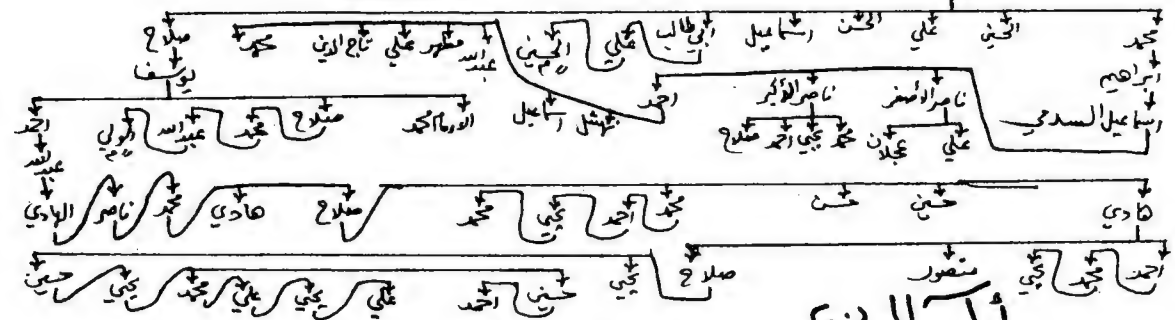 محمد الحسين علي الحسن اسماعيل ابي طالب علي الحسين عبد الله مطهر علي تاج الدين محمد صلاح
ابراهيم يوسف
اسماعيل السدمي ناصر الأصغر ناصر الأكبر احمد نهشل اسماعيل الامام محمد صلاح محمد عبد الله الولي احمد
علي عجلان محمد يحيى احمد صلاح عبد الله
هادي حسين حسن محمد احمد يحيى محمد صلاح هادي محمد ناصر الهادي
احمد محمد يحيى منصور صلاح يحيى حسين احمد علي يحيى علي محمد يحيى حسين